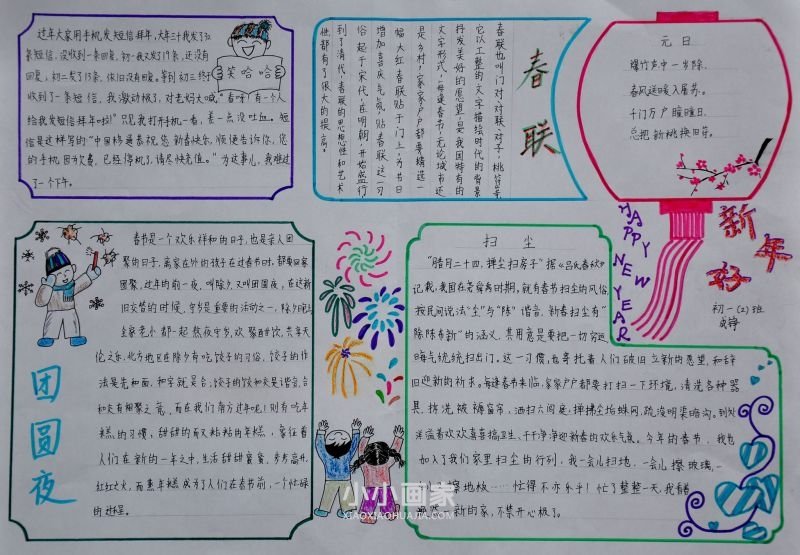 过年大家用手机发短信拜年,大年三十我发了20
条短信,没收到一条回复,初一我又发了19条,还没有
回复,初二发了13条,依旧没有回复。等到初三终于
收到了一条短信,我激动极了,对老妈大喊,"看呀!有一个人
给我发短信拜年啦!"只见我打开手机一看,差一点没吐血。短
信是这样写的:"中国移通恭祝您新春快乐,顺便告诉你,您
的手机因为欠费,已经停机了,请尽快充值。"为这事儿,我难过
了一个下午。
笑哈哈
春联
春联也叫门对、对联、对子,桃符等,
它以工整的文字描绘时代的背景
抒发美好的愿望,是我国特有的
文字形式,每逢春节,无论城市还
是乡村,家家户户都要精选一
幅大红春联贴于门上,为节日
增加喜庆气氛,贴春联这一习
俗起于宋代,在明朝,开始盛行,
到了清代,春联的思想性和艺术
性都有了很大的提高。
元日
爆竹声中一岁除,
春风送暖入屠苏。
千门万户曈曈日,
总把新桃换旧符。
HAPPY NEW YEAR
新年好
初一(2)班
团圆夜
春节是一个欢乐祥和的日子,也是亲人团
聚的日子,离家在外的孩子在过春节时,都要回家
团聚,过年的前一夜,叫除夕,又叫团圆夜,在这新
旧交替的时候,守岁是重要的活动之一,除夕晚上
全家老小都一起熬夜守岁,欢聚酣饮,共享天
伦之乐,北方地区在除夕有吃饺子的习俗,饺子的作
法是先和面,和字就是合;饺子的饺和交是谐音,合
和交有相聚之意,而在我们南方过年呢!则有吃年
糕的习惯,甜甜的而又粘粘的年糕,象征着
人们在新的一年之中,生活甜甜蜜蜜,步步高升,
红红火火,而蒸年糕成为了人们在春节前,一个忙碌
的过程。
扫尘
"腊月二十四,掸尘扫房子"据《吕氏春秋》
记载,我国在尧舜禹时期,就有春节扫尘的风俗,
按民间说法:"尘"与"陈"谐音,新春扫尘有"
除陈布新"的涵义,其用意是要把一切穷运
晦气统统扫出门。这一习惯,也寄托着人们破旧立新的愿望,和辞
旧迎新的祈求。每逢春节来临,家家户户都要打扫一下环境,清洗各种器
具,拆洗被褥窗帘,洒扫六闾庭,掸拂尘垢蛛网,疏浚明渠暗沟。到处
洋溢着欢欢喜喜搞卫生,干干净净迎新春的欢乐气氛。今年的春节,我也
加入了我们家里扫尘的行列,我一会儿扫地,一会儿擦玻璃,一
会儿擦地板……忙得不亦乐乎!忙了整整一天,我看着
新的家,不禁开心极了。
小小画家
GAOXIAOHUAJIA.COM